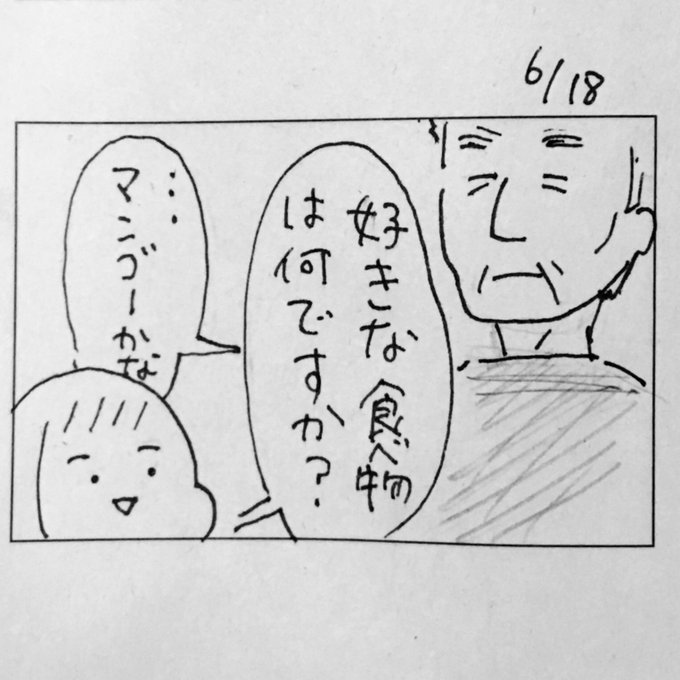 6/18
好きな食べ物
は何ですか？
…マンゴーかな